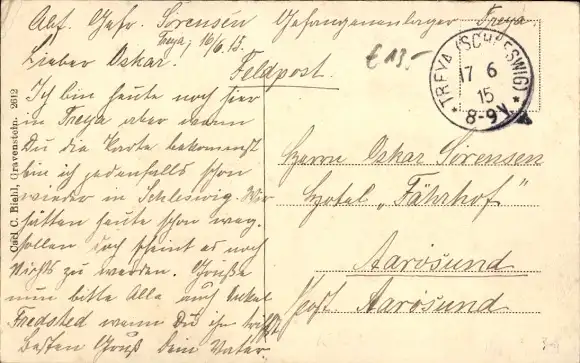 Abs. Gefr. Sörensen Gefangenenlager Treya,
Treya, 16/6.15.
Lieber Oskar.
Feldpost.
€ 13.-
TREYA (SCHLESWIG)
17 6
15
8-9V.
Ich bin heute noch hier
in Treya aber wenn
Du die Karte bekommst
bin ich jedenfalls schon
wieder in Schleswig. Wir
hätten heute schon weg
sollen doch scheint es noch
Nichts zu werden. Grüße
nun bitte Alle auch Onkel
Fredsted wenn Du ihn triffst
Besten Gruß Dein Vater
Herrn Oskar Sörensen
Hotel „Fährhof"
Aarösund
Post Aarösund
Carl C. Biehl, Gravenstein. 2612